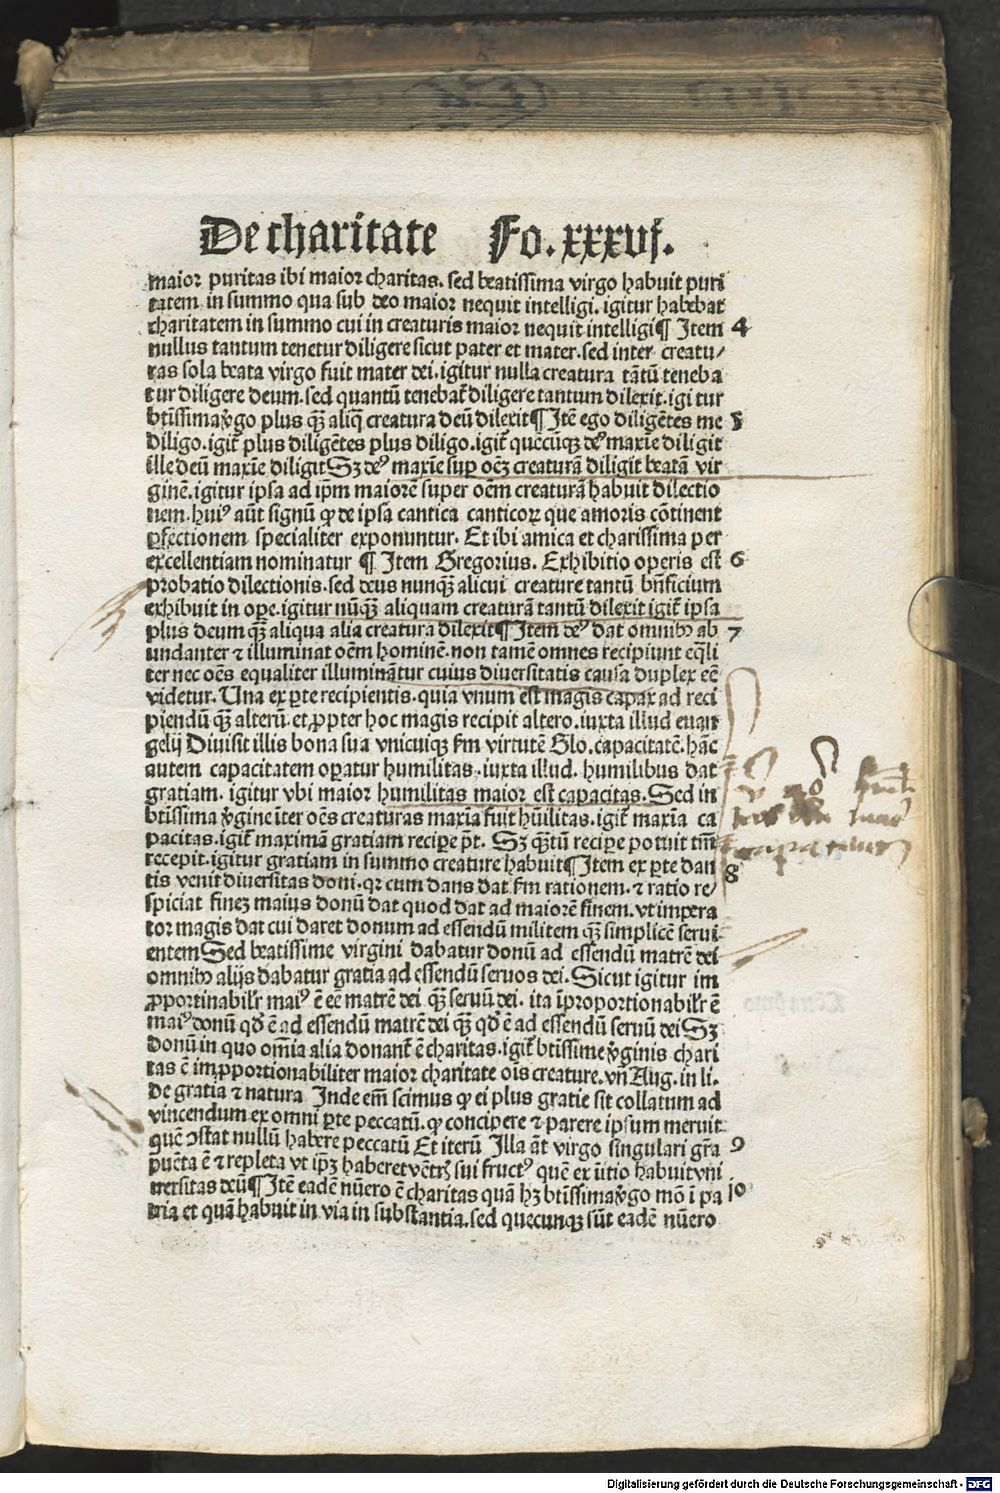 De charitate Fo. xxxvj.
maior puritas ibi maior charitas. sed beatissima virgo habuit puri
tatem in summo qua sub deo maior nequit intelligi. igitur habebat
charitatem in summo cui in creaturis maior nequit intelligi¶ Item 4
nullus tantum tenetur diligere sicut pater et mater. sed inter creatu/
ras sola beata virgo fuit mater dei. igitur nulla creatura tātū teneba
tur diligere deum. sed quantū tenebat̄ diligere tantum dilexit. igi tur
btissima v̄go plus qꝫ aliq̄ creatura deū dilexit¶ Itē ego diligētes me 5
diligo. igit̄ plus diligētes plus diligo. igit̄ quēcūqꝫ deꝰ maxīe diligit
ille deū maxīe diligit Sꝫ deꝰ maxīe suꝑ oēꝫ creaturā diligit beatā vir
ginē. igitur ipsa ad ip̄m maiorē super oēm creaturā habuit dilectio
nem. huiꝰ aūt signū ꝙ de ipsa cantica canticoꝝ que amoris cōtinent
ꝑfectionem specialiter exponuntur. Et ibi amica et charissima per
excellentiam nominatur ¶ Item Gregorius. Exhibitio operis est 6
probatio dilectionis. sed deus nunqꝫ alicui creature tantū bn̄ficium
exhibuit in oꝑe. igitur nūqꝫ aliquam creaturā tantū dilexit igit̄ ipsa
plus deum qꝫ aliqua alia creatura dilexit¶ Item deꝰ dat omnibꝰ ab 7
undanter ⁊ illuminat oēm hominē. non tamē omnes recipiunt eq̄li
ter nec oēs equaliter illuminātur cuius diuersitatis causa duplex eē
videtur. Una ex ꝑte recipientis. quia vnum est magis capax ad reci
piendū qꝫ alterū. et ꝓpter hoc magis recipit altero. iuxta illud euan
gelij Diuisit illis bona sua vnicuiqꝫ fm virtutē Glo. capacitatē. hāc
autem capacitatem oꝑatur humilitas. iuxta illud. humilibus dat
gratiam. igitur vbi maior humilitas maior est capacitas. Sed in
btissima v̄gine iter oēs creaturas maxīa fuit hūilitas. igit̄ maxīa ca
pacitas. igit̄ maximā gratiam reciꝑe pt̄. Sꝫ qꝫtū reciꝑe potuit tm̄
recepit. igitur gratiam in summo creature habuit¶ Item ex ꝑte dan 8
tis venit diuersitas doni. qꝛ cum dans dat fm rationem. ⁊ ratio re/
spiciat fineꝫ maius donū dat quod dat ad maiorē finem. vt impera
tor magis dat cui daret donum ad essendū militem qꝫ simplicē serui
entem Sed beatissime virgini dabatur donū ad essendū matrē dei
omnibꝰ alijs dabatur gratia ad essendū seruos dei. Sicut igitur im
ꝓportinabilr̄ maiꝰ ē eē matrē dei qꝫ seruū dei. ita īproportionabilr̄ ē
maiꝰ donū qd̄ ē ad essendū matrē dei qꝫ qd̄ ē ad essendū seruū dei Sꝫ
donū in quo om̄ia alia donant̄ ē charitas. igit̄ btissime v̄ginis chari
tas ē imꝓportionabiliter maior charitate oīs creature. vn̄ Aug. in li.
de gratia ⁊ natura Inde em̄ scimus ꝙ ei plus gratie sit collatum ad
vincendum ex omni ꝑte peccatū. ꝙ concipere ⁊ parere ipsum meruit
quē ↄstat nullū habere peccatū Et iterū Illa āt virgo singulari gr̄a 9
ꝑuēta ē ⁊ repleta vt ip̄ꝫ haberet vētrꝭ sui fructꝰ quē ex īitio habuit vni
uersitas deū¶ Itē eadē nūero ē charitas quā hꝫ btissima v̄go mō ī pa 10
tria et quā habuit in via in substantia. sed quecunqꝫ sūt eadē nūero
Digitalisierung gefördert durch die Deutsche Forschungsgemeinschaft - DFG